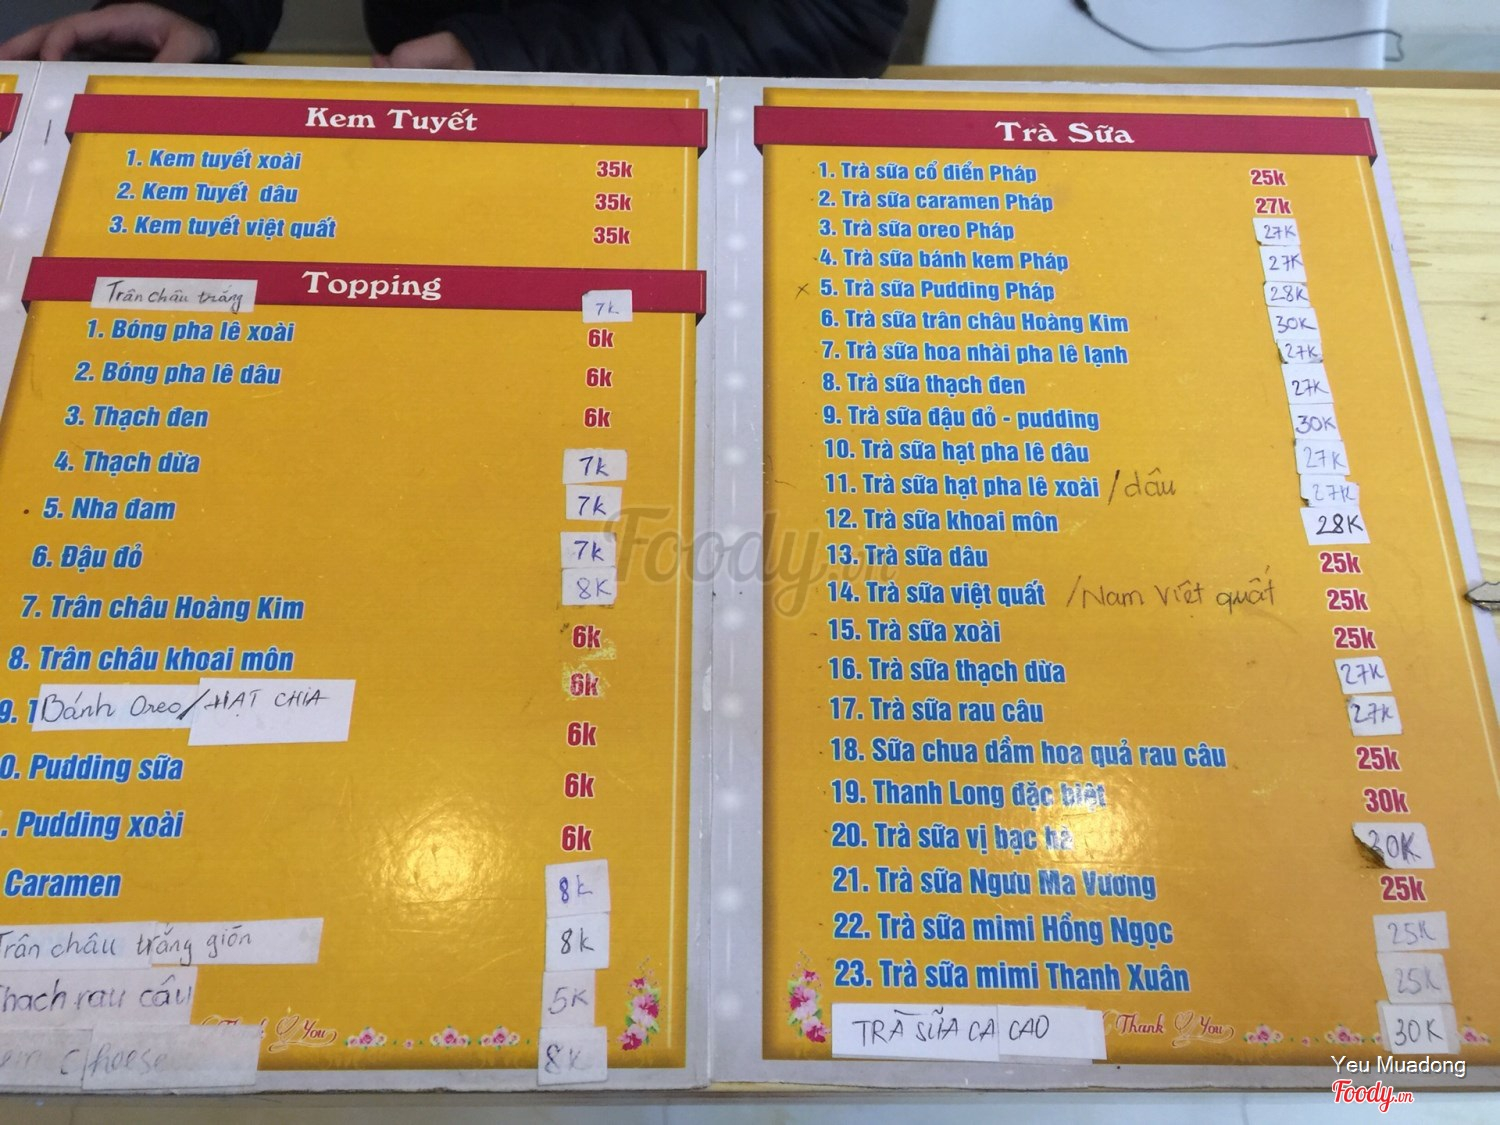 Kem Tuyết
1. Kem tuyết xoài 35k
2. Kem Tuyết dâu 35k
3. Kem tuyết việt quất 35k
Topping
Trân châu trắng 7k
1. Bóng pha lê xoài 6k
2. Bóng pha lê dâu 6k
3. Thạch đen 6k
4. Thạch dừa 7k
5. Nha đam 7k
6. Đậu đỏ 7k
8K
7. Trân châu Hoàng Kim 6k
8. Trân châu khoai môn 6k
9. T Bánh Oreo / HẠT CHIA 6k
0. Pudding sữa 6k
. Pudding xoài 6k
Caramen 8k
Trân châu trắng giòn 8k
Thach rau câu 5K
Cheese 8K
Thank You
Trà Sữa
1. Trà sữa cổ điển Pháp 25k
2. Trà sữa caramen Pháp 27k
3. Trà sữa oreo Pháp 27K
4. Trà sữa bánh kem Pháp 27K
x 5. Trà sữa Pudding Pháp 28K
6. Trà sữa trân châu Hoàng Kim 30K
7. Trà sữa hoa nhài pha lê lạnh 27K
8. Trà sữa thạch đen 27K
9. Trà sữa đậu đỏ - pudding 30K
10. Trà sữa hạt pha lê dâu 27K
11. Trà sữa hạt pha lê xoài / dâu 27K
12. Trà sữa khoai môn 28K
13. Trà sữa dâu 25k
14. Trà sữa việt quất / Nam Việt quất 25k
15. Trà sữa xoài 25k
16. Trà sữa thạch dừa 27K
17. Trà sữa rau câu 27K
18. Sữa chua dầm hoa quả rau câu 25k
19. Thanh Long đặc biệt 30k
20. Trà sữa vị bạc hà 30K
21. Trà sữa Ngưu Ma Vương 25k
22. Trà sữa mimi Hồng Ngọc 25K
23. Trà sữa mimi Thanh Xuân 25K
TRÀ SỮA CA CAO 30K
Thank You
Foody.vn
Yeu Muadong
Foody.vn